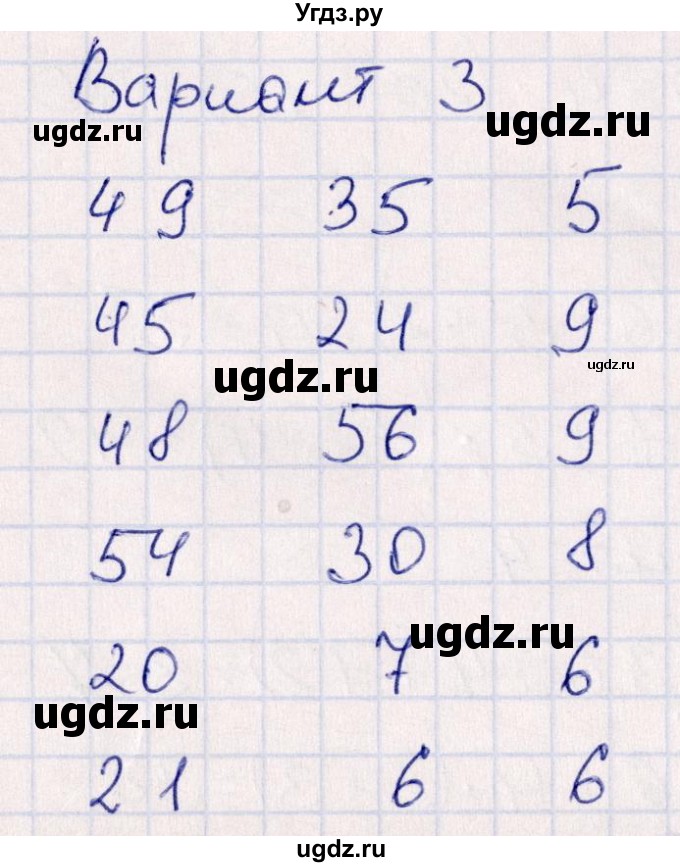 Угдз.ру
Вариант 3
ugdz.ru ugdz.ru
49 35 5
45 24 9
ugdz.ru ugdz.ru
48 56 9
54 30 8
ugdz.ru
20 7 6
ugdz.ru
21 6 6
ugdz.ru